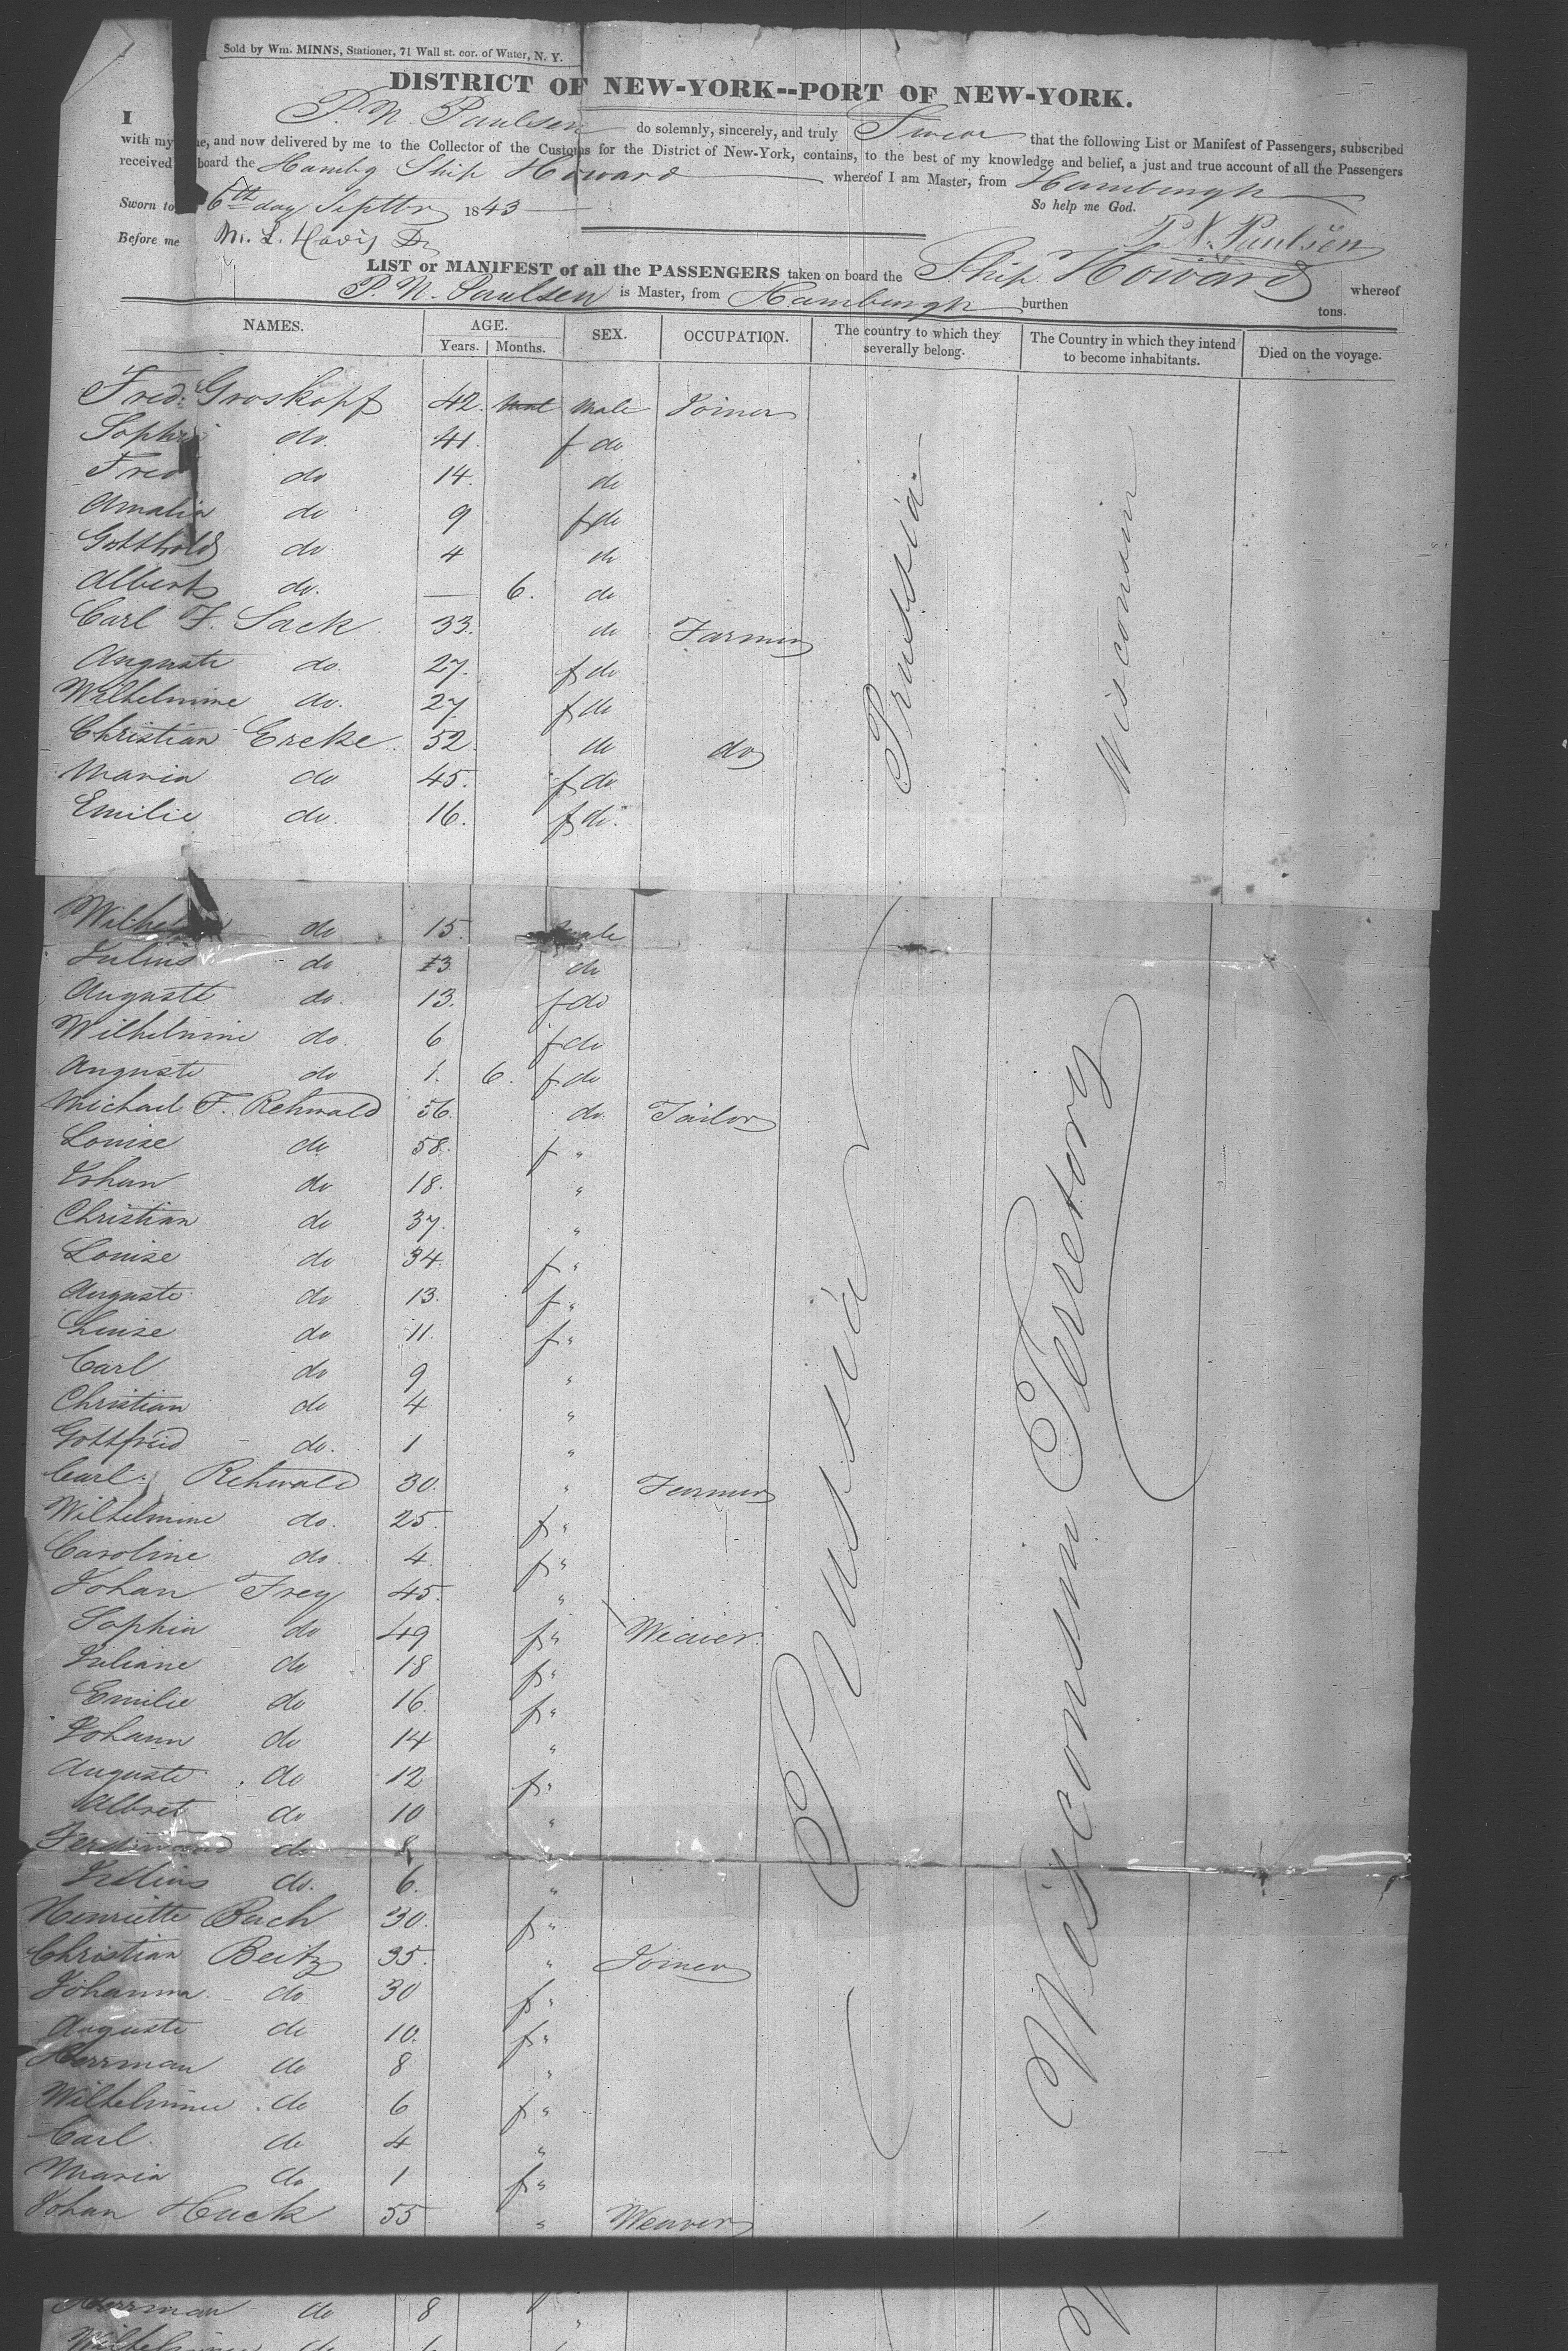 Sold by Wm. MINNS, Stationer, 71 Wall st. cor. of Water, N. Y.
DISTRICT OF NEW-YORK--PORT OF NEW-YORK.
I P. N. Paulsen do solemnly, sincerely, and truly Swear that the following List or Manifest of Passengers, subscribed
with my e, and now delivered by me to the Collector of the Customs for the District of New-York, contains, to the best of my knowledge and belief, a just and true account of all the Passengers
received board the Hambg Ship Howard whereof I am Master, from Hamburgh
Sworn to 6th day Septbr 1843 So help me God.
P. N. Paulsen
Before me M. L. Davis
LIST or MANIFEST of all the PASSENGERS taken on board the Ship Howard whereof
P. N. Paulsen is Master, from Hamburgh burthen tons.
NAMES. AGE. Years. Months. SEX. OCCUPATION. The country to which they severally belong. The Country in which they intend to become inhabitants. Died on the voyage.
Fred: Groskopf 42. Male Joiner
Sophie do. 41. f do
Fred do 14. do
Amalia do 9 f do
Gotthold do 4 do
Albert do. — 6. do
Carl F. Sack 33. do Farmer
Auguste do. 27. f do
Wilhelmine do. 27 f do
Christian Ercke. 52. do do
Maria do 45. f do
Emilie do. 16. f do.
Prussia
Wisconsin
Wilhelm do 15. Male
Julius do 13 do
Auguste do. 13. f do
Wilhelmine do. 6 f do
Auguste do 1. 6. f do
Michael F. Rehwald 56. do. Tailor
Louise do 58. f "
Johan do 18. "
Christian do 37. "
Louise do 34. f "
Auguste do 13. f "
Luise do 11. f "
Carl do 9 "
Christian do 4 "
Gottfried do. 1 "
Carl Rehwald 30. " Farmer
Wilhelmine do. 25. f "
Caroline do. 4. f "
Johan Frey 45. "
Sophia do 49 f " Weaver.
Juliane do 18 f "
Emilie do 16. f "
Johann do 14 "
Auguste do 12 f "
Albret do 10 "
Ferdinand do 8
Julius do. 6. "
Henriette Buch 30. f "
Christian Beitz 35. " Joiner
Johanna do 30 f "
Auguste do 10. f "
Herrman do 8 "
Wilhelmine do 6 f "
Carl. do 4 "
Maria do 1 f "
Johan Huck 55 " Weaver
Prussia
Wisconsin Teretory
Herrman do 8 "